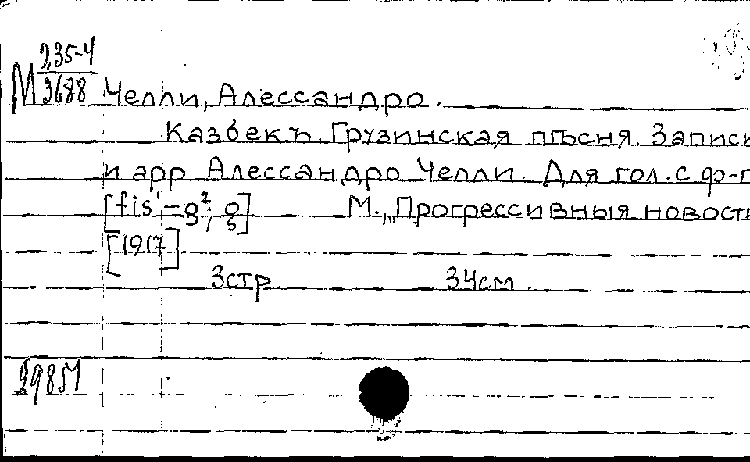 М 235-4
3688
Челли, Алессандро.
Казбекъ. Грузинская пѣсня. Запись
и арр Алессандро Челли. Для гол. с ф-п
[fis'-g²; g] М., „Прогрессивныя новости
[1917]
3стр 34см